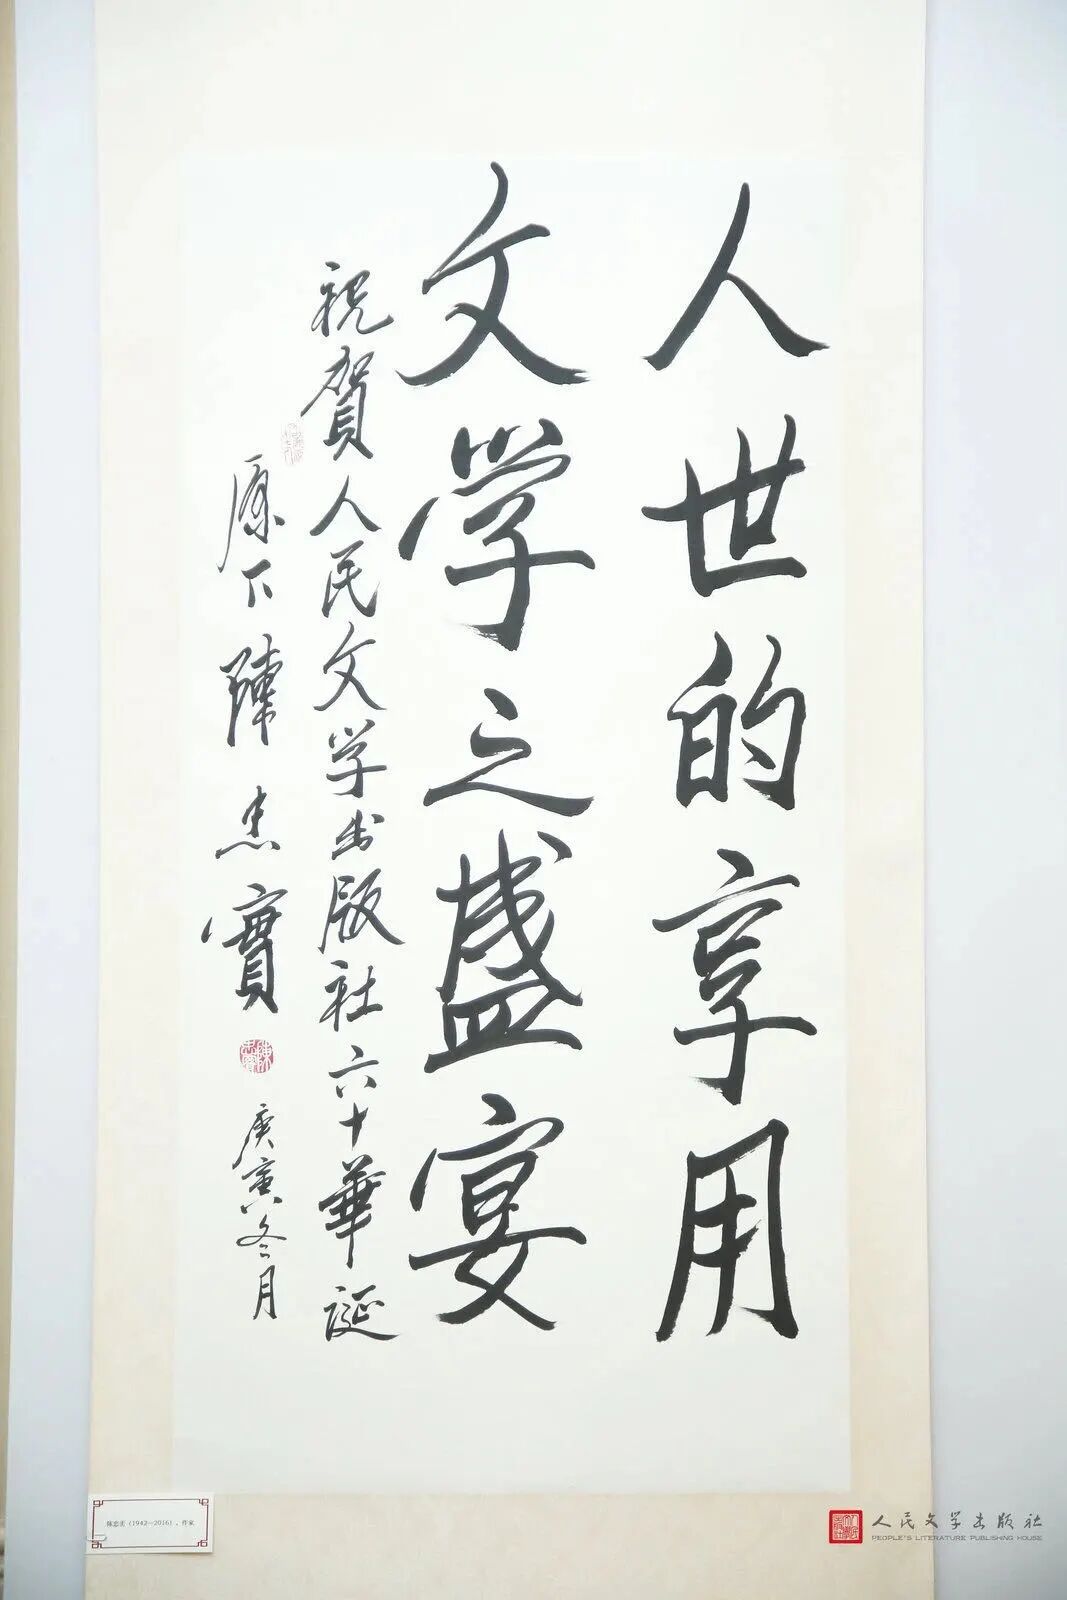 人世的享用
文学之盛宴
祝賀人民文学出版社六十華誕
原下陳忠實
庚寅冬月
陈忠实（1942—2016），作家
人民文学出版社
PEOPLE'S LITERATURE PUBLISHING HOUSE